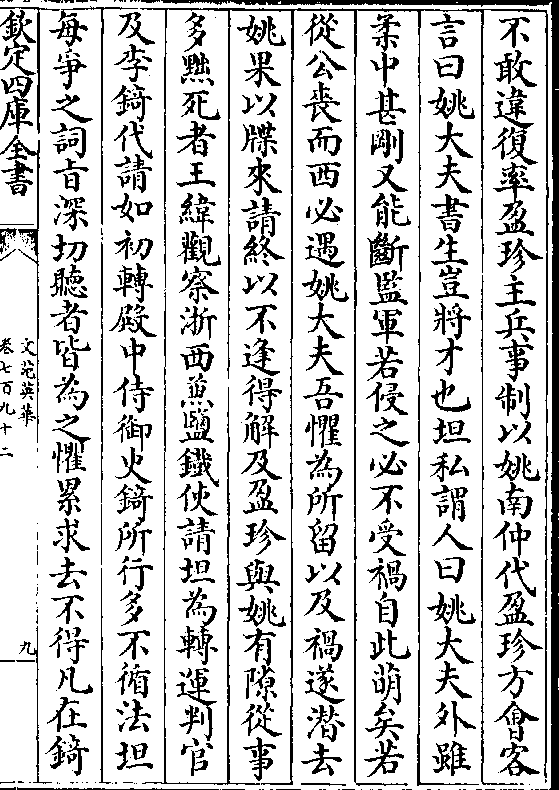 不敢違復率盈珍主兵事制以姚南仲代盈珍方會客
言曰姚大夫書生豈將才也坦私謂人曰姚大夫外雖
柔中甚剛又能斷監軍若侵之必不受禍自此萌矣若
從公喪而西必遇姚大夫吾懼為所留以及禍遂潜去
姚果以牒來請終以不逢得解及盈珍與姚有隙從事
多黜死者王緯觀察浙西兼鹽鐵使請坦為轉運判官
及李錡代請如初轉殿中侍御史錡所行多不循法坦
每爭之詞旨深切聽者皆為之懼累求去不得凡在錡
欽定四庫全書
文苑英華
卷七百九十二
九